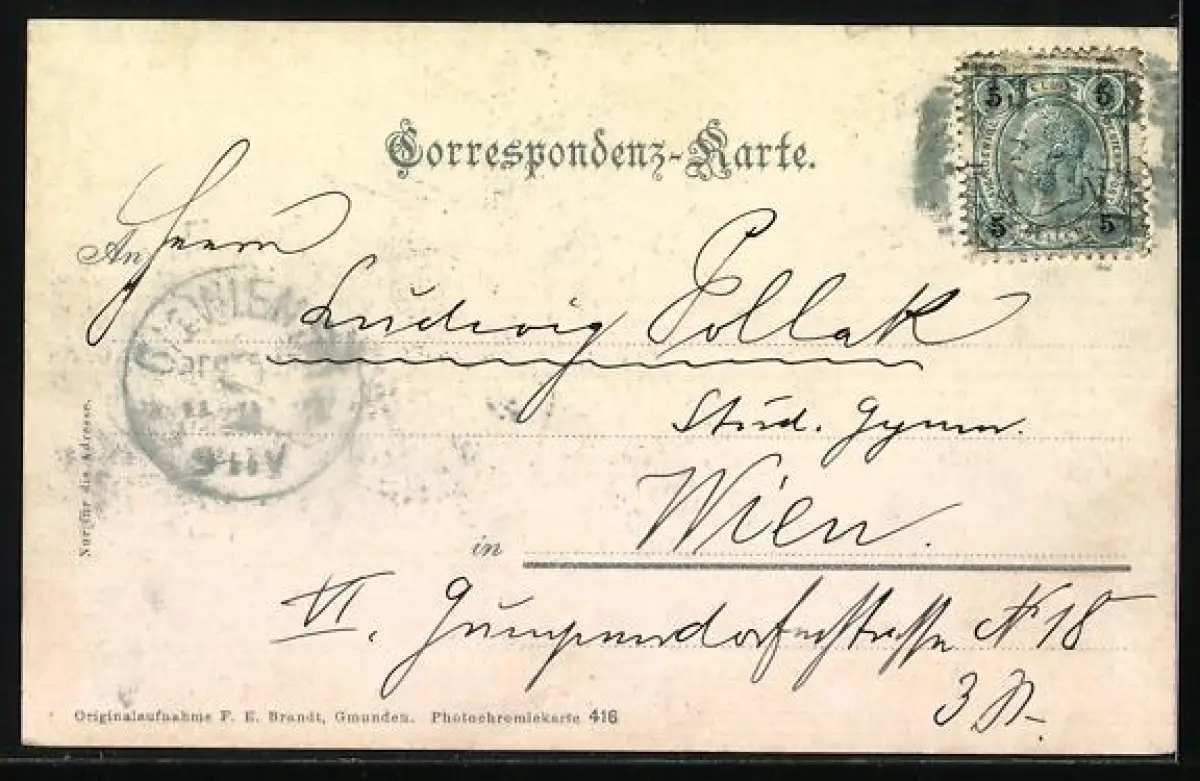 Correspondenz-Karte.
5 5
5 5
An Herrn
Ludwig Pollak
WIEN
Stud. Gymn.
Nur für die Adresse.
in Wien.
VI. Gumpendorferstrasse N 18
Originalaufnahme F. E. Brandt, Gmunden. Photochromiekarte 416